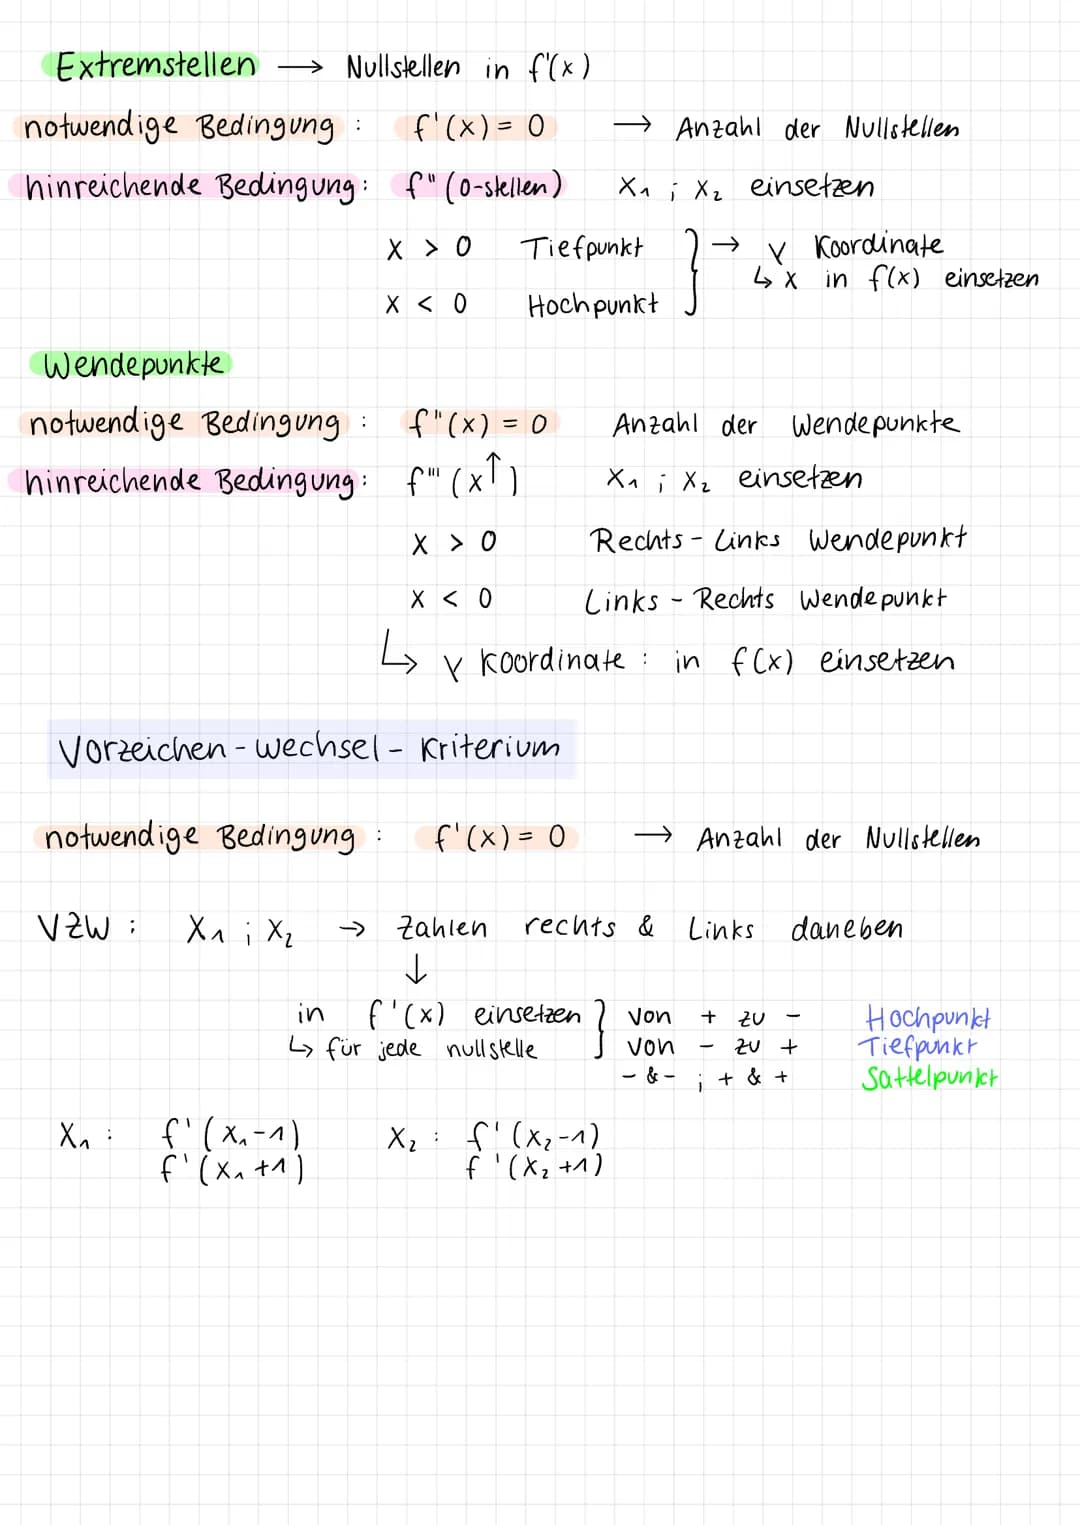 Extremstellen → Nullstellen in f'(x)
notwendige Bedingung : f'(x) = 0 → Anzahl der Nullstellen
hinreichende Bedingung: f" (0-stellen) x₁ ; x₂ einsetzen
x > 0 Tiefpunkt } → Y Koordinate
↳ x in f(x) einsetzen
x < 0 Hochpunkt
Wendepunkte
notwendige Bedingung : f"(x) = 0 Anzahl der Wendepunkte
hinreichende Bedingung: f''' (x↑) x₁ ; x₂ einsetzen
x > 0 Rechts - Links Wendepunkt
x < 0 Links - Rechts Wendepunkt
↳ Y Koordinate : in f(x) einsetzen
Vorzeichen - wechsel - Kriterium
notwendige Bedingung : f'(x) = 0 → Anzahl der Nullstellen
VZW : X₁ ; X₂ → Zahlen rechts & Links daneben
↓
in f'(x) einsetzen } von + zu - Hochpunkt
↳ für jede nullstelle von - zu + Tiefpunkt
- & - ; + & + Sattelpunkt
X₁ : f'(x₁-1) X₂ : f'(x₂-1)
f'(x₁+1) f'(x₂+1)